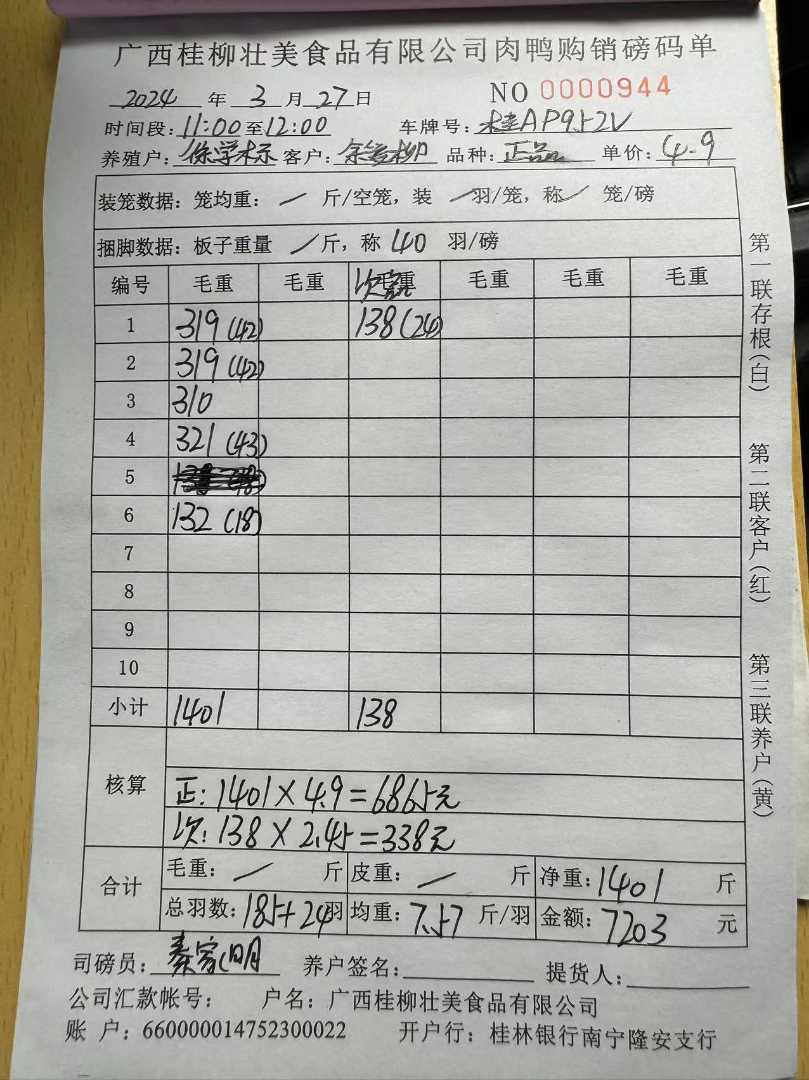 广西桂柳壮美食品有限公司肉鸭购销磅码单
2024 年 3 月 27 日 NO 0000944
时间段: 11:00 至 12:00 车牌号: 桂AP952V
养殖户: 徐学标 客户: 余 柳 品种: 正品 单价: 4.9
装笼数据: 笼均重: / 斤/空笼, 装 / 羽/笼, 称 / 笼/磅
捆脚数据: 板子重量 / 斤, 称 40 羽/磅
编号 毛重 毛重 次 毛重 毛重 毛重 毛重
1 319 (42) 138 (24)
2 319 (42)
3 310
4 321 (43)
5
6 132 (18)
7
8
9
10
小计 1401 138
核算
正: 1401 X 4.9 = 6865元
次: 138 X 2.45 = 338元
合计 毛重: / 斤 皮重: / 斤 净重: 1401 斤
总羽数: 185+24 羽 均重: 7.57 斤/羽 金额: 7203 元
司磅员: 秦家明 养户签名: 提货人:
公司汇款帐号: 户名: 广西桂柳壮美食品有限公司
账 户: 660000014752300022 开户行: 桂林银行南宁隆安支行
第一联存根(白)
第二联客户(红)
第三联养户(黄)